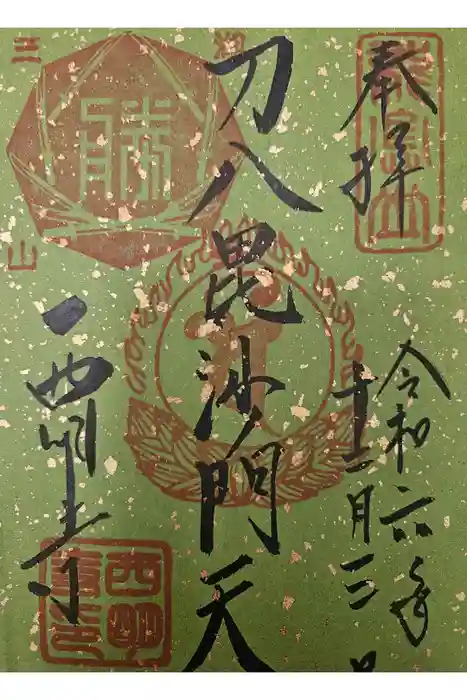 奉拝
令和六年
十二月三日
刀八毘沙門天
西明寺
湖
三
山
勝